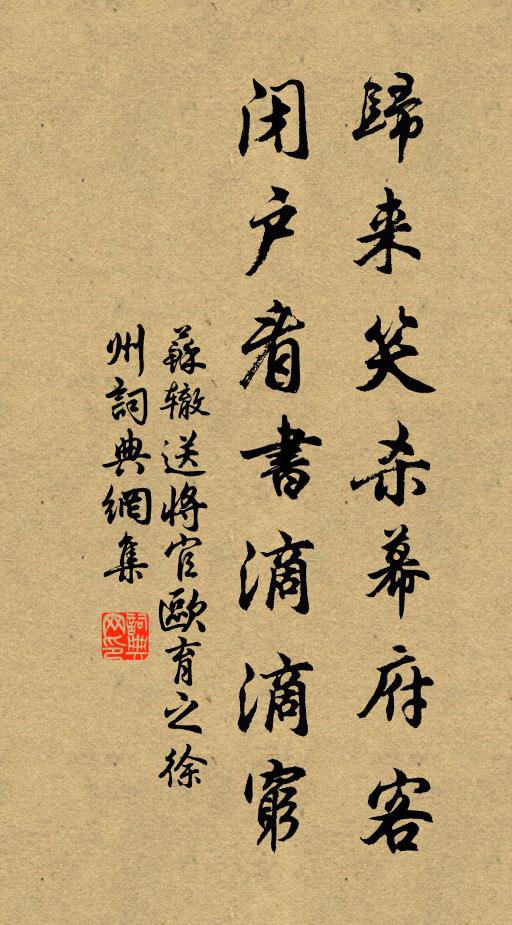 歸来笑杀幕府客
闭户看書滴滴窮
蘇辙送將官歐育之徐
州詞典網集
詞典網印